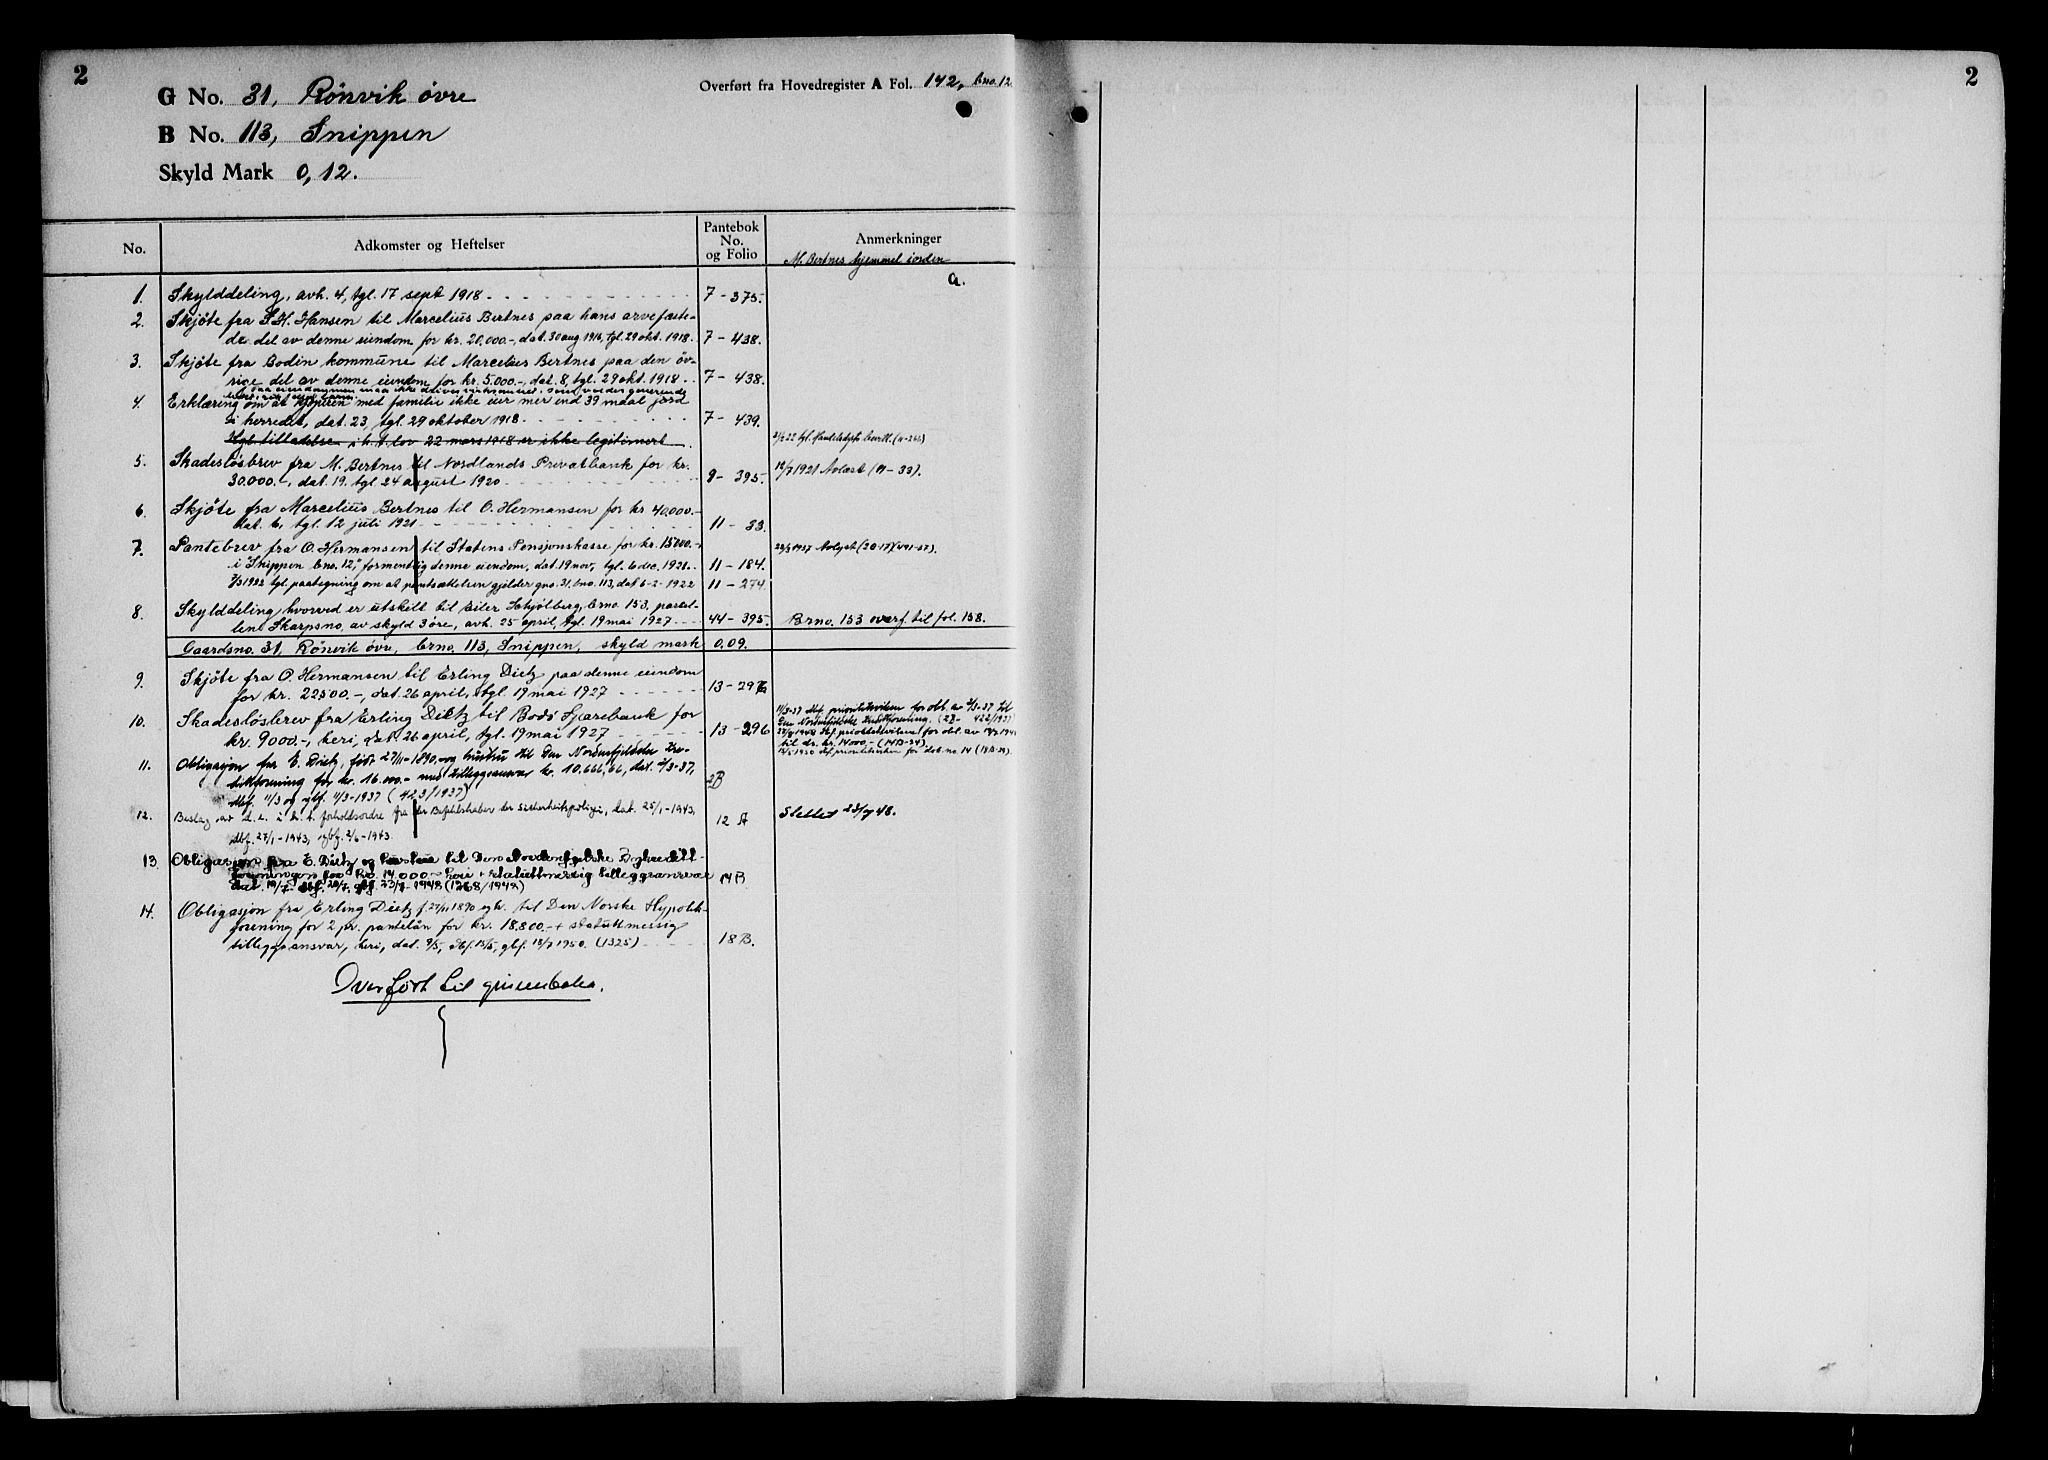 2
G No. 31, Rönvik övre
B No. 113, Snippen
Skyld Mark 0,12.
Overført fra Hovedregister A Fol. 142, bno. 12
No.
Adkomster og Heftelser
Pantebok No. og Folio
Anmerkninger
M. Bertnes hjemmel iorden
a.
1. Skylddeling, avh. 4, tgl. 17 sept 1918 7-375.
2. Skjöte fra S. H. Hansen til Marcelius Bertnes paa hans arvefæste-
de del av denne eiendom for kr. 20,000.-, dat. 30 aug 1916, tgl. 29 okt. 1918. 7-438.
3. Skjöte fra Bodin kommune til Marcelius Bertnes paa den öv-
rige del av denne eiendom for kr. 5.000.-, dat. 8, tgl. 29 okt. 1918 7-438.
4. Erklæring om at kjöperen med familie ikke eier mer end 39 maal jord
i herredet, dat. 23, tgl. 29 oktober 1918 7-439.
Hgl. tilladelse i h. t. lov 22 mars 1918 er ikke legitimert
5. Skadeslösbrev fra M. Bertnes til Nordlands Privatbank for kr. 12/7 1921 Avlæst (11-33).
30.000.-, dat. 19, tgl. 24 august 1920 9-395.
6. Skjöte fra Marcelius Bertnes til O. Hermansen for kr 40,000.-
dat. 6, tgl. 12 juli 1921 11-33.
7. Pantebrev fra O. Hermansen til Statens Pensjonskasse for kr. 15000.- 23/3 1937 Avlyst (20-17)(491-37).
i "Snippen bno. 12," formentlig denne eiendom, dat. 19 nov, tgl. 6 dec. 1921. 11-184.
7/3 1922 tgl. paategning om at pantsættelsen gjelder gno. 31, bno. 113, dat 6-2-1922 11-274
8. Skylddeling hvorved er utskilt til Eiler Schjölberg, brno. 153, parcel-
len Skarpsno, av skyld 3 öre, avh. 25 april, tgl. 19 mai 1927 44-395. Brno. 153 overf. til fol. 158.
Gaardsno. 31, Rönvik övre, brno. 113, Snippen, skyld mark 0.09.
9. Skjöte fra O. Hermansen til Erling Dietz paa denne eiendom
for kr. 22500.-, dat. 26 april, tgl. 19 mai 1927 13-296
10. Skadeslösbrev fra Erling Dietz til Bodö Sparebank for
kr. 9000.-, heri, dat. 26 april, tgl. 19 mai 1927 13-296
11/3-37 dbf. prioritetsviken for obl. av 2/3-37 til
Den Nordenfjelske Kreditforening. (2B- 422/1937)
til kr. 14000.- (14B-24)
11. Obligasjon fra E. Dietz, född 27/11-1890, og hustru til Den Nordenfjelske Kre-
dittforening for kr. 16.000.- med tilleggsansvar kr. 10.666,66, dat. 2/3-37, 2B
dbf. 11/3 og gbf. 11/3-1937 (423/1937)
12. Beslag av d. e. i h. t. forholdsordre fra der Befehlshaber der Sicherheitspolizei, dat. 25/1-1943, 12 A Slettet 23/9 48.
dbf. 27/1-1943, gbf. 2/6-1943.
13 Obligasjon fra E. Dietz og hustru til Den Nordenfjelske Bykreditt-
foreningen for kr. 14.000.- heri + statuttmessig tilleggsansvar 14B
14. Obligasjon fra Erling Dietz f. 27/11 1890 og h. til Den Norske Hypotek-
forening for 2 pr. pantelån for kr. 18,800.- + statuttmessig
tilleggsansvar, heri, dat. 9/5, dbf. 15/5, gbf. 18/7 1950. (1325) 18 B.
Overført til grunnboka.
2